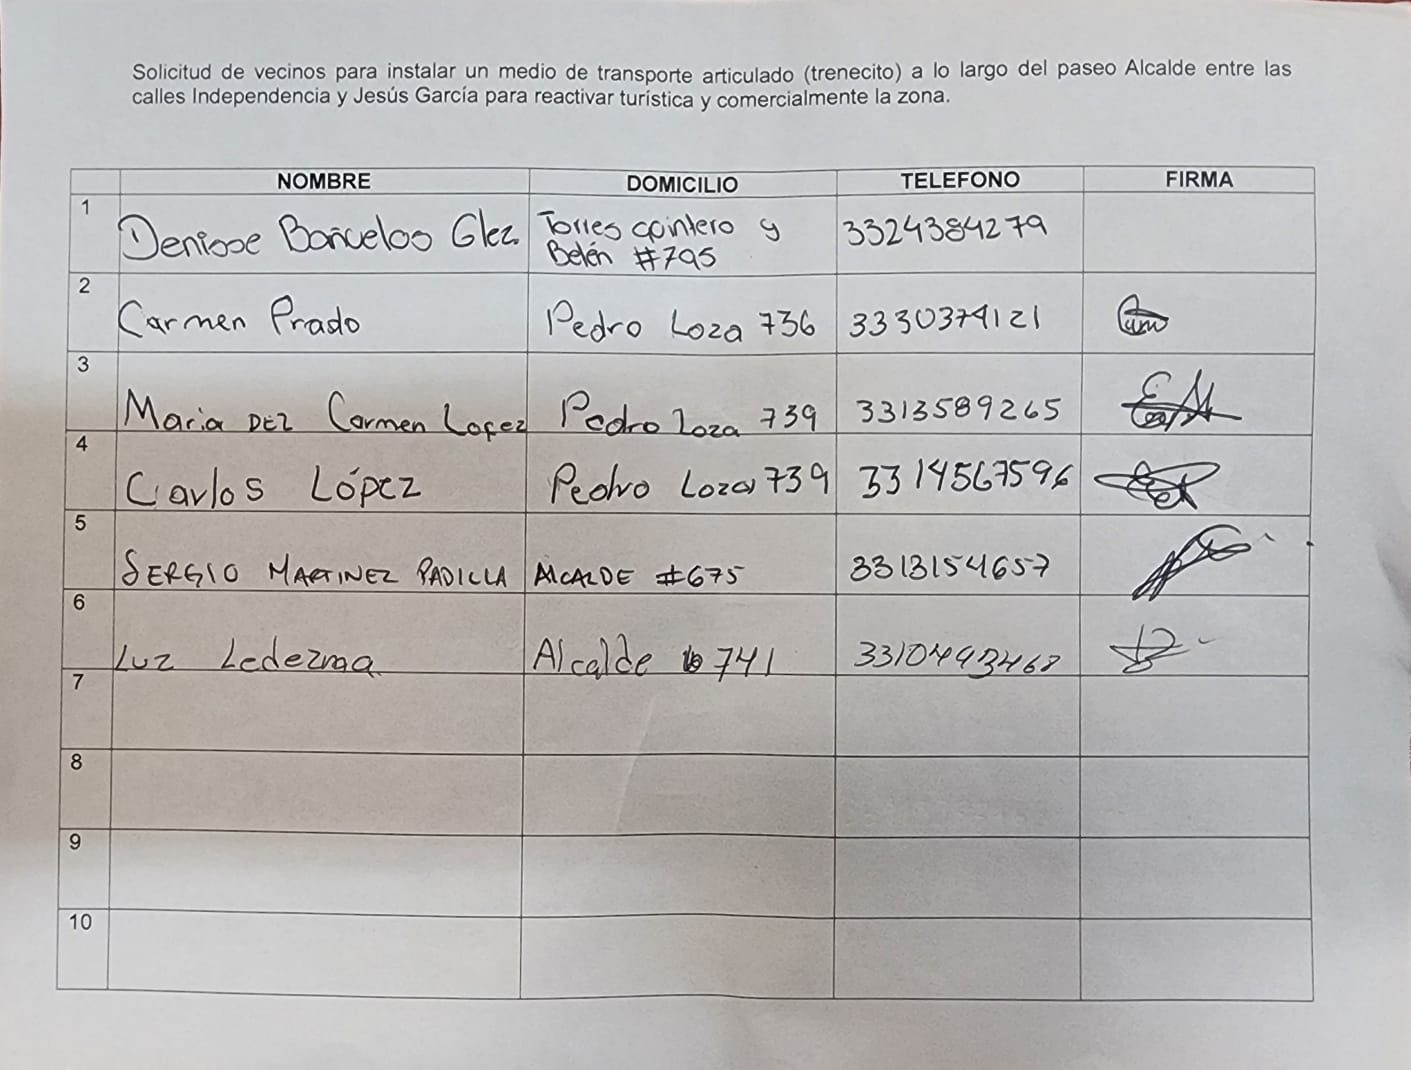 Solicitud de vecinos para instalar un medio de transporte articulado (trenecito) a lo largo del paseo Alcalde entre las
calles Independencia y Jesús García para reactivar turística y comercialmente la zona.
NOMBRE DOMICILIO TELEFONO FIRMA
1 Denisse Bañuelos Glez. Torres quintero y 3324384279
Belén #795
2 Carmen Prado Pedro Loza 736 3330374121
3 Maria DEL Carmen Lopez Pedro Loza 739 3313589265
4 Carlos López Pedro Loza 739 3314567596
5 SERGIO MARTINEZ PADILLA ALCALDE #675 3313154657
6 Luz Ledezma Alcalde 741 3310493468
7
8
9
10